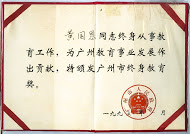 黄国显同志终身从事教
育工作，为广州教育事业发展作
出贡献，特颁发广州市终身教育
奖。
一九九 年 月